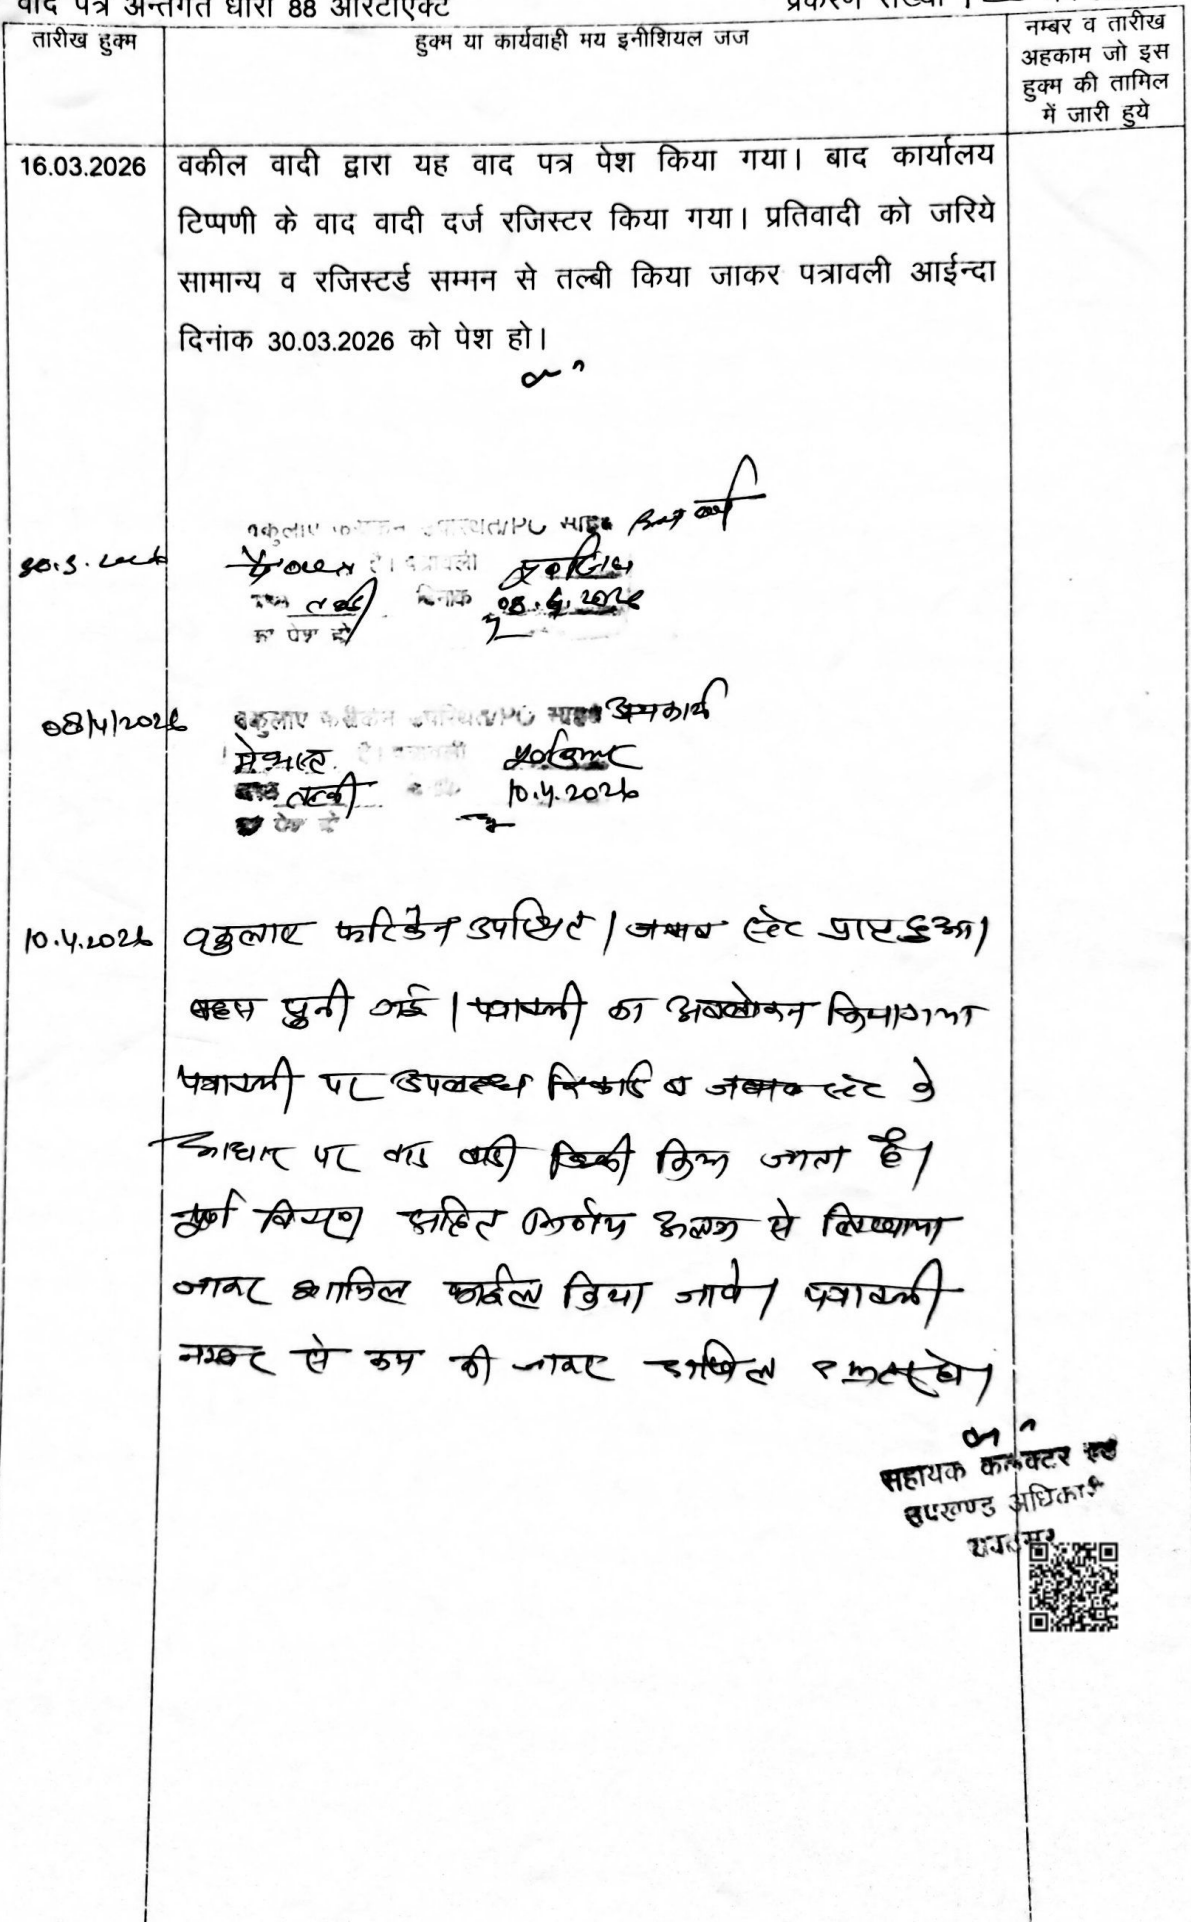 वाद पत्र अन्तर्गत धारा 88 आरटीएक्ट प्रकरण संख्या
तारीख हुक्म
हुक्म या कार्यवाही मय इनीशियल जज
नम्बर व तारीख
अहकाम जो इस
हुक्म की तामिल
में जारी हुये
16.03.2026 वकील वादी द्वारा यह वाद पत्र पेश किया गया। बाद कार्यालय
टिप्पणी के वाद वादी दर्ज रजिस्टर किया गया। प्रतिवादी को जरिये
सामान्य व रजिस्टर्ड सम्मन से तल्बी किया जाकर पत्रावली आईन्दा
दिनांक 30.03.2026 को पेश हो।
वकुलाए उपस्थित/PO साहब
30.3.2026 है। पत्रावली
तल्बी दिनांक 08.4.2026
को पेश हो
08/4/2026 वकुलाए फरीकेन उपस्थित/PO साहब अन्यकार्य
है। पत्रावली
तल्बी 10.4.2026
पेश हो
10.4.2026 वकुलाए फरिकेन उपस्थित। जबाब स्टेट प्राप्त हुआ।
बहस सुनी गई। पत्रावली का अवलोकन किया गया
पत्रावली पर उपलब्ध रिकार्ड व जबाब स्टेट के
आधार पर वाद वादी डिक्री किया जाता है।
पूर्ण विवरण सहित निर्णय अलग से लिखाया
जाकर शामिल फाईल किया जावे। पत्रावली
नम्बर से कम की जाकर दाखिल दफ्तर हो।
सहायक कलेक्टर एवं
उपखण्ड अधिकारी